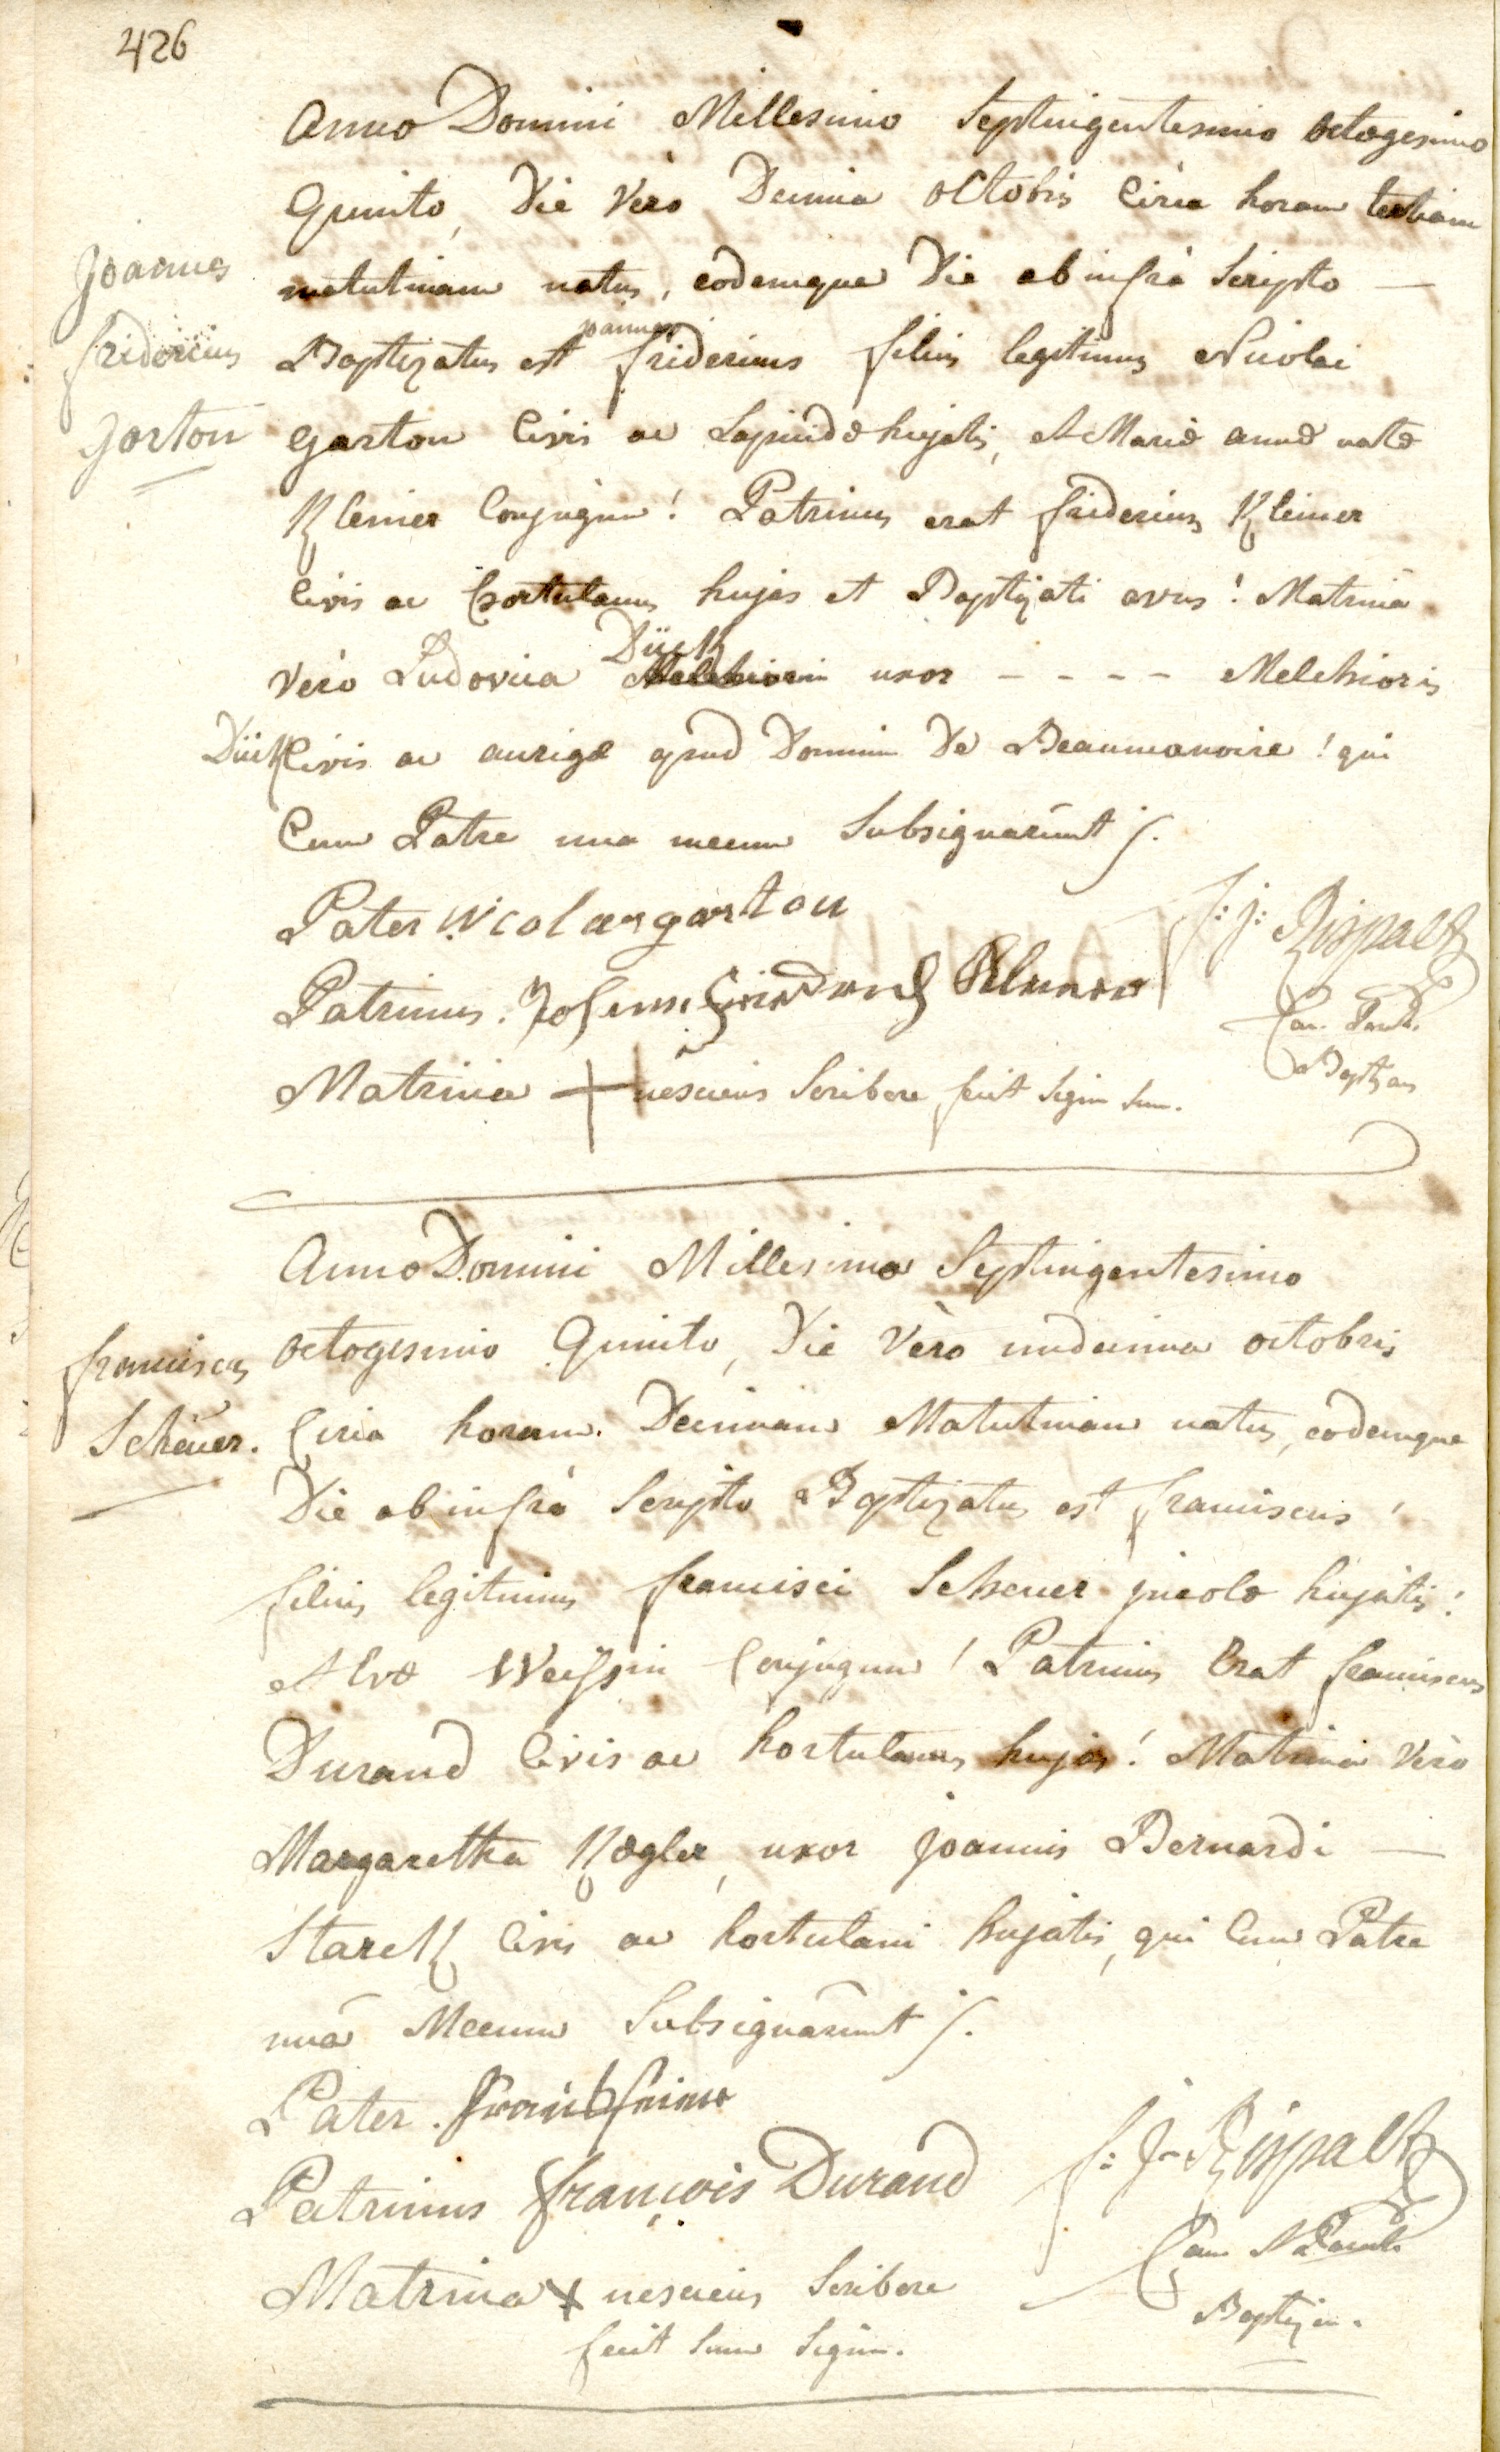 426
Anno Domini Millesimo Septuigentesimo octogesimo
Quinto, Die Vèro Decima octobris Circa horam tertiam
matutinam natus, eodemque Die ab infrà Scripto —
Joannes
Baptizatus est joannes fridericus filius legitimus Nicolai
fridericus
Garton Civis ac Lapicidæ hujatis, et Mariæ annæ natæ
Garton
Kleiner Conjugum! Patrinus erat fridericus Kleiner
Civis ac hortulanus hujas et Baptizati avus! Matrina
Vèro Ludovica Dück uxor - - - - Melchioris
Dück Civis ac aurigæ apud Dominum De Beaumanoire! qui
Cum Patre una mecum Subsignarunt /.
Pater Nicolas garton
F: J: Rispalt
Patrinus. Johann
Can. Baptizans
Matrina + nesciens Scribere fecit Signum Suum.
Anno Domini Millesimo Septingentesimo
octogesimo Quinto, Die Vèro undecima octobris
franciscus
Circa horam Decimam Matutinam natus, eodemque
Scheüer.
Die ab infrà Scripto Baptizatus est franciscus!
filius legitimus francisci Scheuer jncolæ hujatis!
et Evæ Weissin Conjugum! Patrinus Erat franciscus
Durand Civis ac hortulanus hujas! Matrina Vèro
Margaretha Kögler, uxor Joannis Bernardi —
Starck Civis ac hortulani hujatis, qui Cum Patre
unà Mecum Subsignarunt /.
Pater.
Patrinus françois Durand
F: J: Rispalt
Matrina + nesciens Scribere
Baptizan.
fecit Suum Signum.